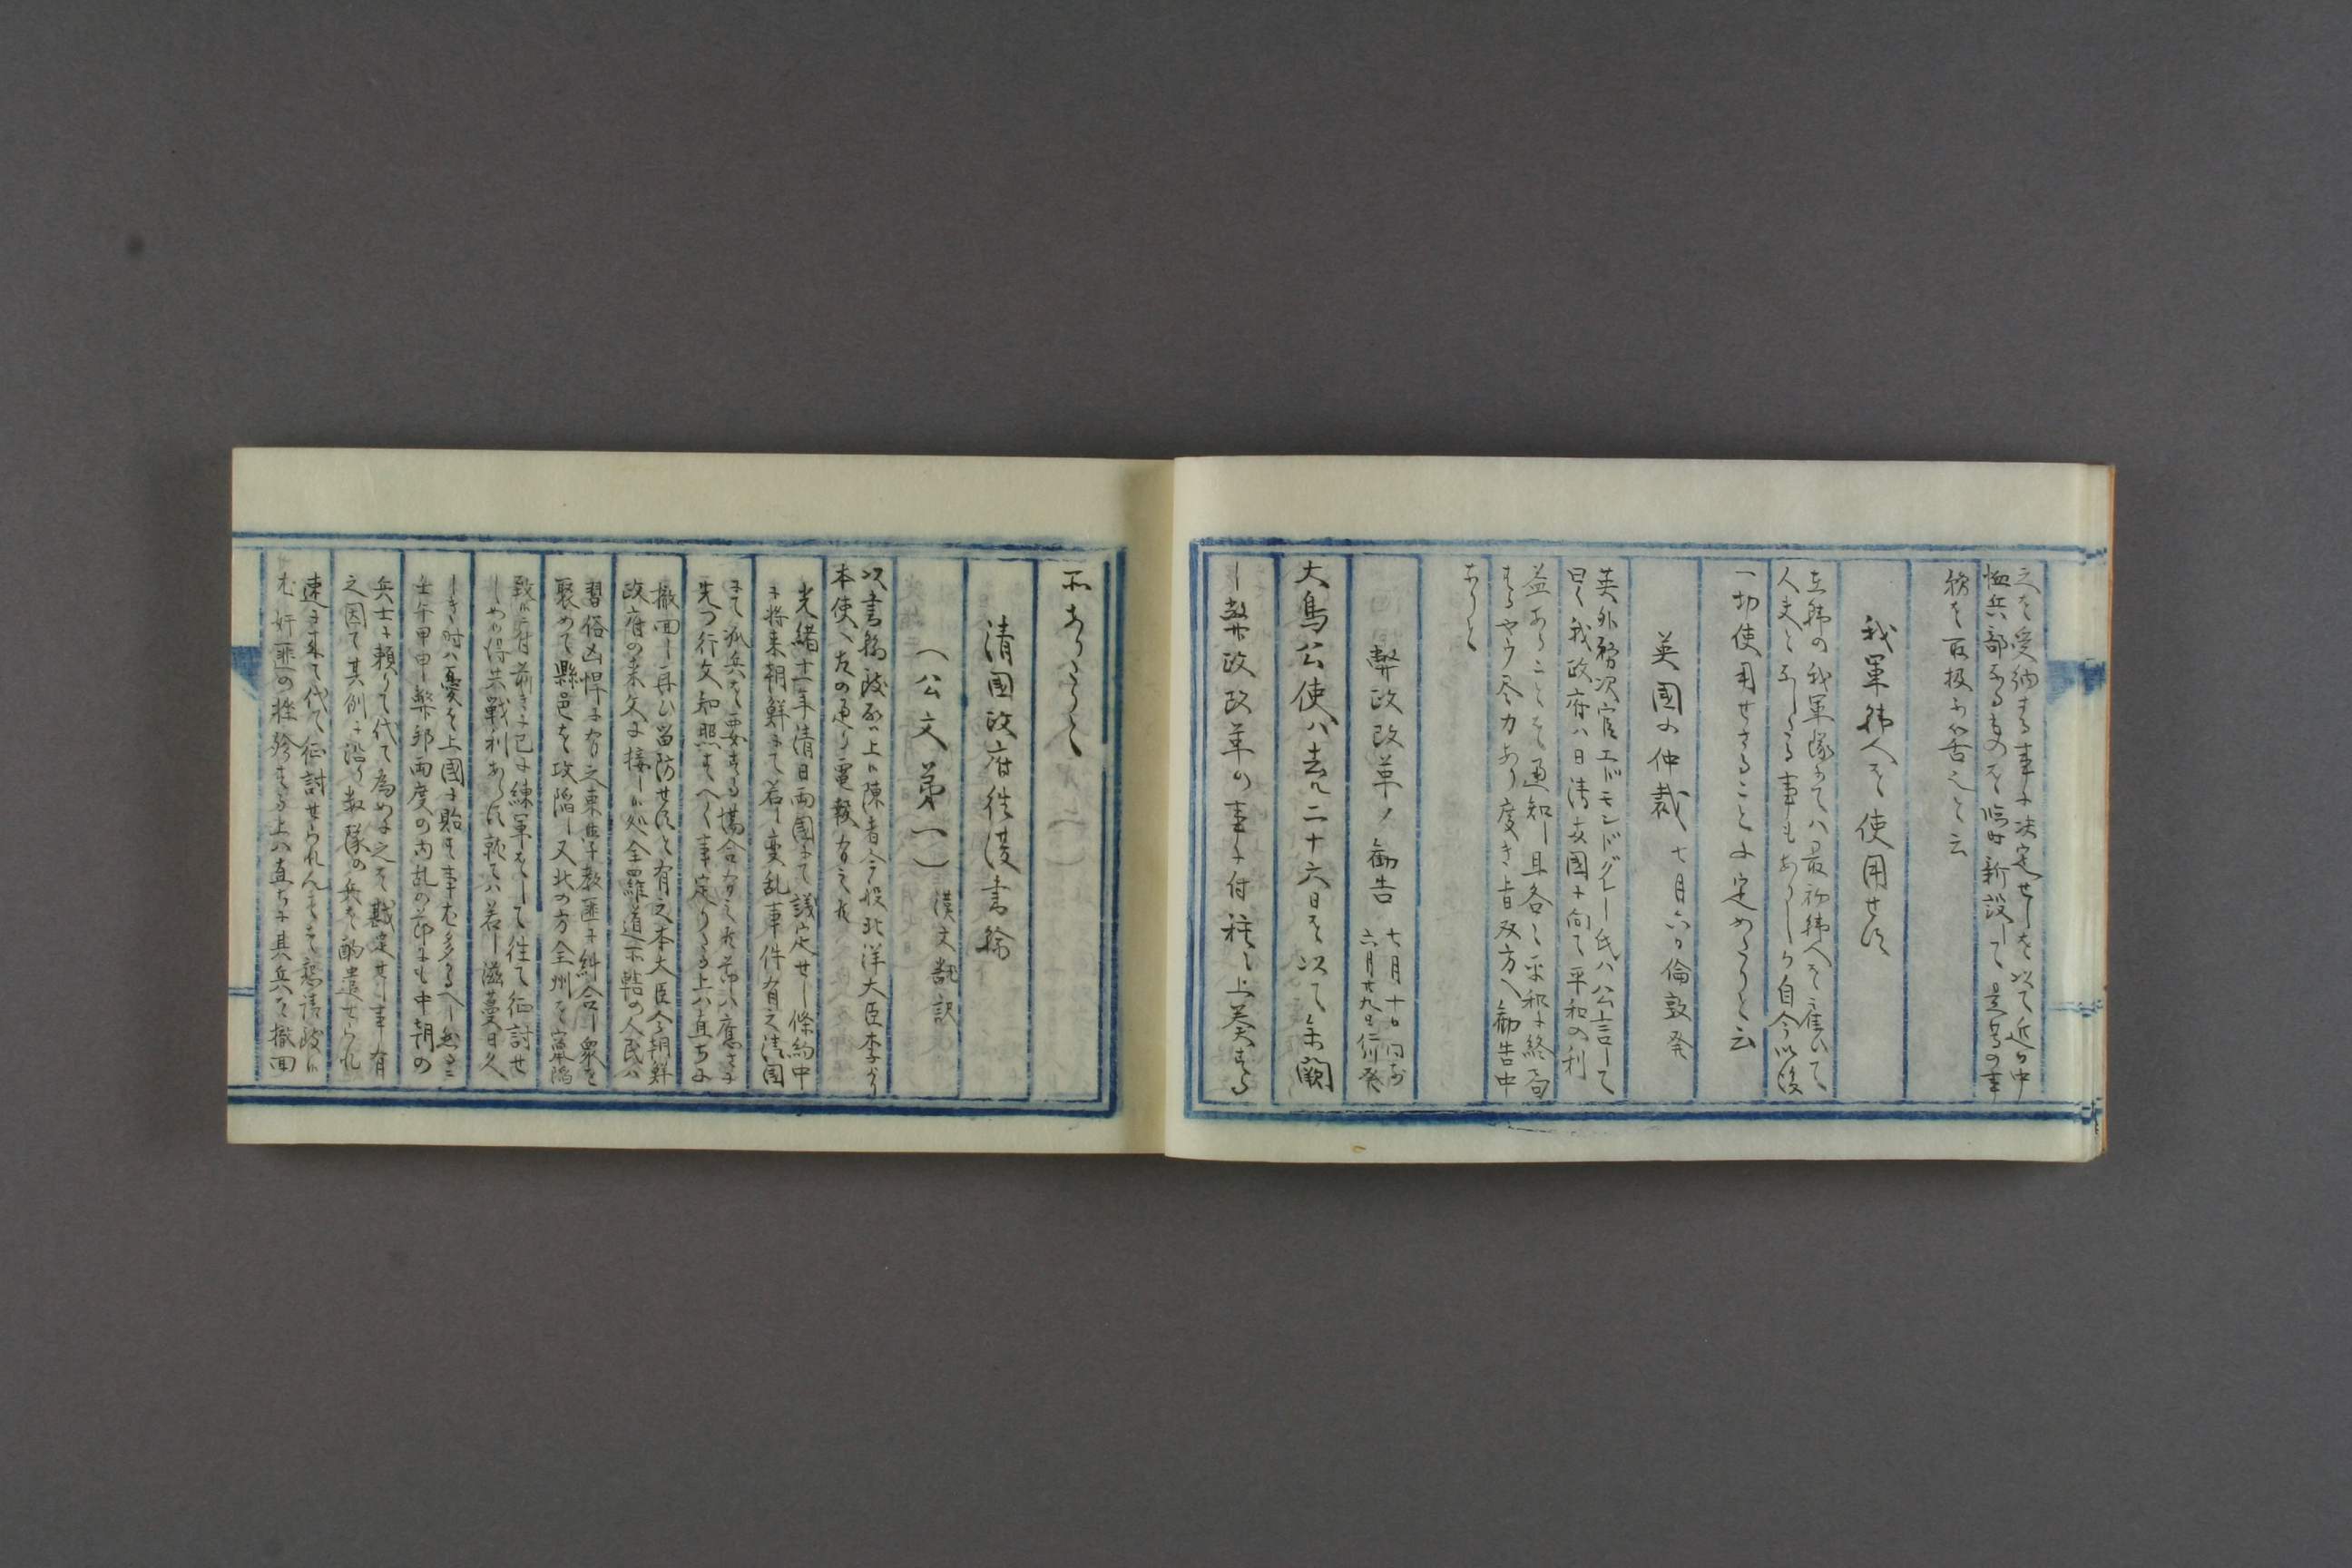 之を受納する事に決定せしを以て近々中
恤兵部なるものを臨時新設して是等の事
務を取扱ふ筈之と云
我軍韓人を使用せす
在韓の我軍隊にては最初韓人を雇ひて
人夫と為したる事もありしか自今以後
一切使用せさることに定めたりと云
英国の仲裁 七月六日倫敦発
英外務次官エドモンドグレー氏ハ公言して
曰く我政府ハ日清両国に向て平和の利
益あることを通知し且各々平和に終局
するやう尽力あり度き旨双方へ勧告中
なりと
弊政改革ノ勧告 七月十日
六月廿九日仁川発
大鳥公使ハ去凡二十六日を以て参闕
し弊政改革の事に付種々上奏する
所ありたりと
清國政府往復書翰
(公文第一) 漢文翻訳
以書翰致啓上候陳者今般北洋大臣李より
本使へ左の通り電報有之候
光緒十一年清日両國にて議定せし條約中
に将来朝鮮にて若し変乱事件有之清国
にて派兵を要する場合有之候節ハ應さに
先つ行文知照すへく事定りたる上ハ直ちに
撤回し再ひ留防せすと有之本大臣今朝鮮
政府の来文に接し候処全羅道所轄の人民ハ
習俗凶悍に有之東學教匪に糾合し衆を
聚めて縣邑を攻陥し又北の方全州を竄陥
致候に付前きに已に練軍をして往て征討せ
しめ候得共戦利あらす就てハ若し滋蔓日久
しき時ハ憂を上國に貽す事も多かるへし
壬午甲申弊邦両度の内乱の節にも中朝の
兵士に頼りて代て為めに之を戡定せし事有
之因て其例に沿り数隊の兵を酌遣せられ
速に来て代て征討せられんことを懇請致候
尤奸匪の挫殄する上ハ直ちに其兵を撤回